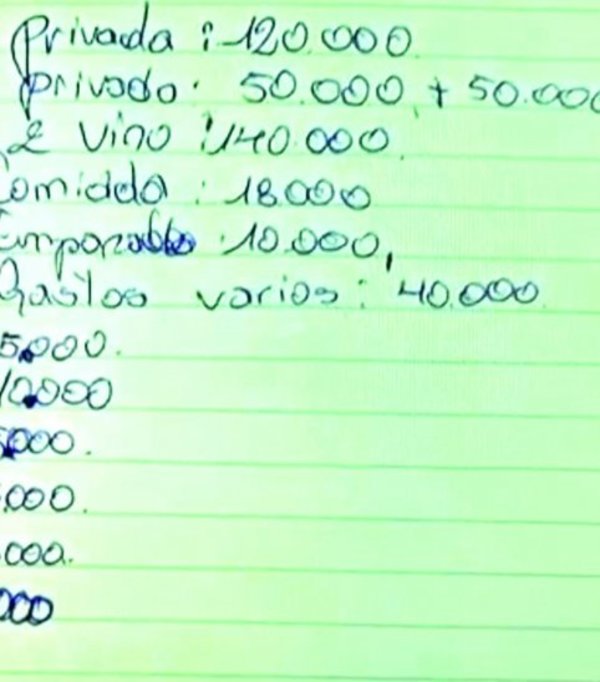 Privada : 120.000
privado: 50.000 + 50.000
2 Vino : 140.000.
Comidda : 18.000
10.000,
Gastos varios : 40.000
5.000.
12.000
.000.
.000.
.000.
000